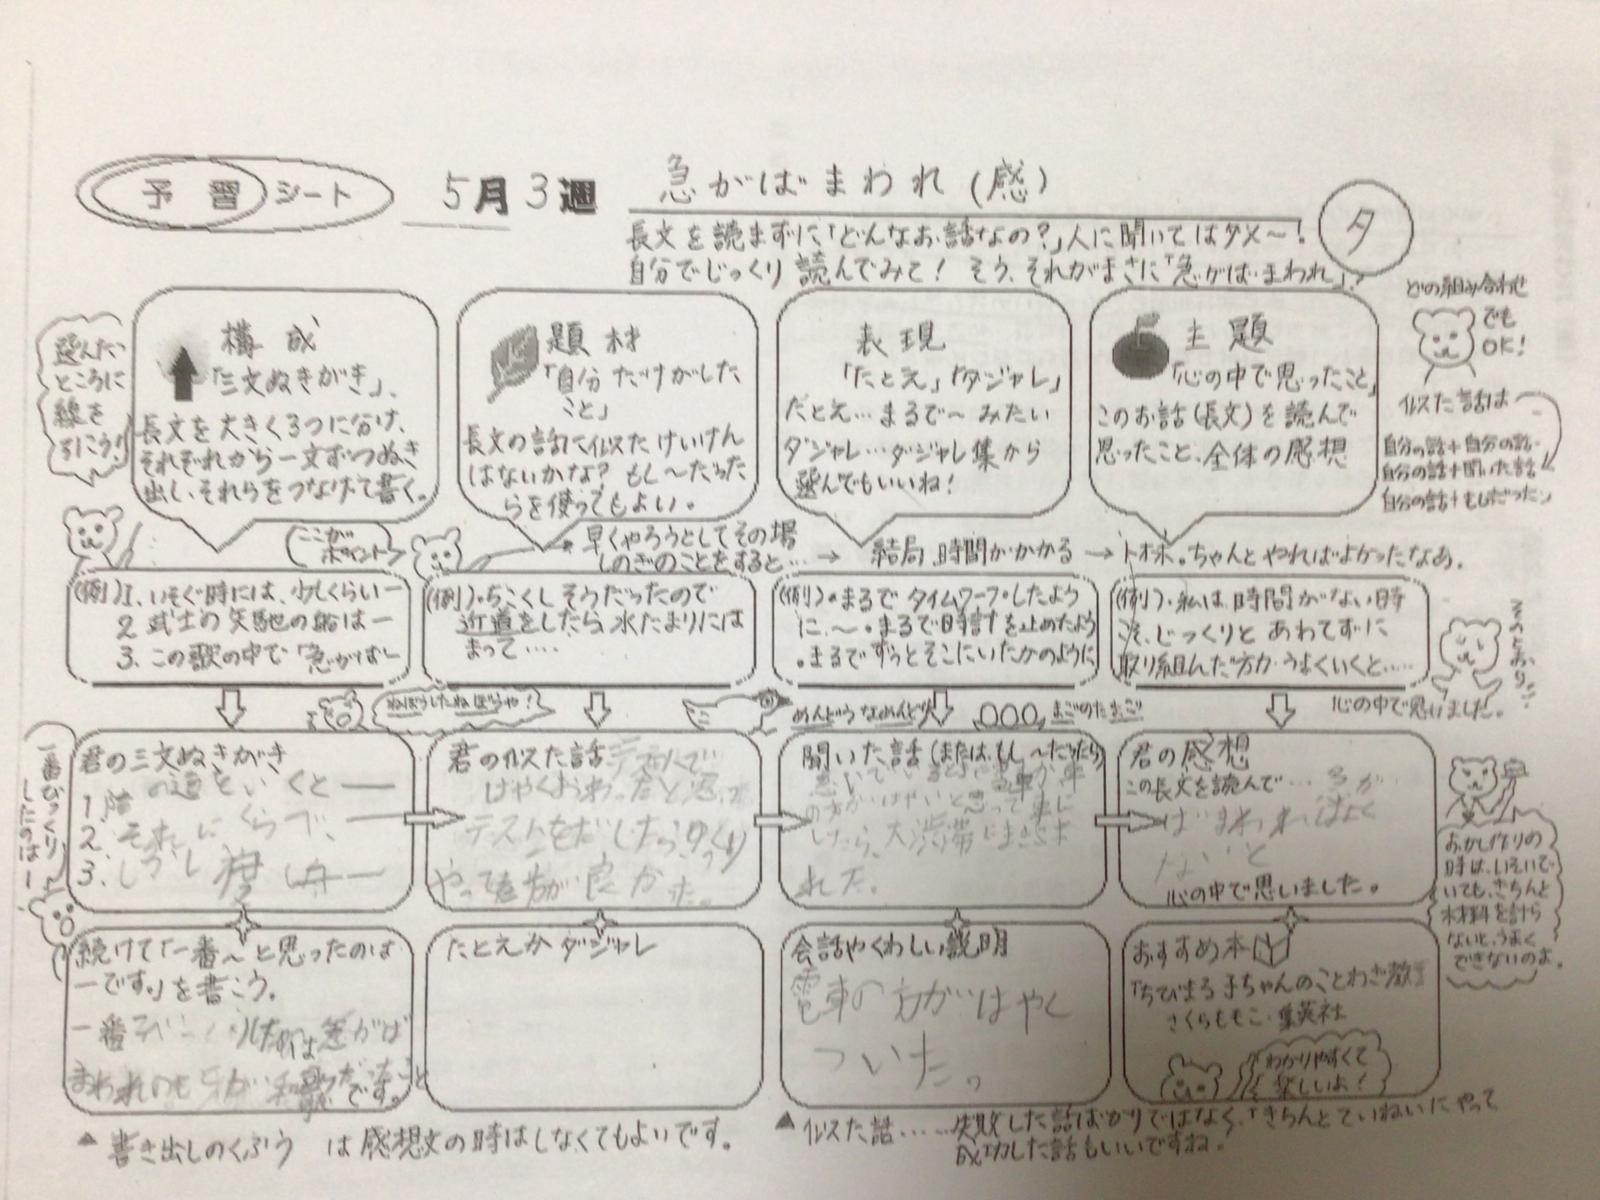 予習シート
5月3週
急がばまわれ(感)
夕
長文を読まずに、「どんなお話なの?」人に聞いてはダメ~!
自分でじっくり読んでみて! そう、それがまさに「急がば・まわれ」?
選んだ
ところに
線を
引こう!
構成
「三文ぬきがき」、
長文を大きく3つに分け、
それぞれから一文ずつぬき
出し、それらをつなげて書く。
題材
「自分だけがした
こと」
長文の話に似たけいけん
はないかな? もし~だった
らを使ってもよい。
表現
「たとえ」「ダジャレ」
たとえ…まるで~みたい
ダジャレ…ダジャレ集から
選んでもいいね!
主題
「心の中で思ったこと」
このお話(長文)を読んで
思ったこと、全体の感想
どの組み合わせ
でも
OK!
似た話は
自分の話+自分の話・
自分の話+聞いた話
自分の話+もしだったら
ここが
ポイント
早くやろうとしてその場
しのぎのことをすると…
→ 結局、時間がかかる → トホホ。ちゃんとやればよかったなあ。
(例)1、いそぐ時には、少しくらいー
2 武士の矢馳の船はー
3、この歌の中で「急がばー
(例)・ちこくしそうだったので
近道をしたら、水たまりには
まって‥‥
(例)・まるでタイムワープしたよう
に、~・まるで時計を止めたよう
・まるでずっとそこにいたかのように
(例)・私は、時間がない時
こそ、じっくりとあわてずに
取り組んだ方が、うまくいくと‥‥
そのとおり!!
心の中で思いました。
ねぼうしたねぼうや!
めんどうなめんどり
まごのたまご
一番びっくり
したのはー
君の三文ぬきがき
の道をいくとー
1
2. それにくらべ、
3. しかし 船ー
君の似た話 テストで
はやくおわったと思って
テストをだしたら、ゆっくり
やって方が良かった。
聞いた話(または、もし~だったら)
急いでいるときに電車か車
の方がはやいと思って車に
したら、大渋滞にまきこま
れた。
君の感想
この長文を読んで…急が
ばまわればよく
ないと
心の中で思いました。
続けて「一番~と思ったのは
ーです。」を書こう。
一番びっくりしたのは急がば
まわれのもとが和歌だったこと
です。
たとえかダジャレ
会話やくわしい説明
電車の方がはやく
ついた。
おすすめ本
「ちびまる子ちゃんのことわざ教
さくらももこ・集英社
わかりやすくて
楽しいよ!
おかし作りの
時は、いそいで
いても、きちんと
材料を計ら
ないと、うまく
できないのよ。
▲ 書き出しのくふう は感想文の時はしなくてもよいです。
▲似た話‥‥‥失敗した話ばかりではなく、「きちんとていねいにやって
成功した話もいいですね。